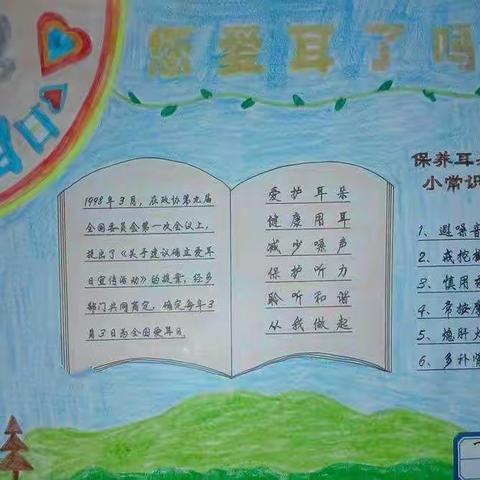 您爱耳了吗
日
1998年3月，在政协第九届
全国委员会第一次会议上，
提出了《关于建议确立爱耳
日宣传活动》的提案，经多
部门共同商定，确定每年3
月3日为全国爱耳日。
爱护耳朵
健康用耳
减少噪声
保护听力
聆听和谐
从我做起
保养耳
小常识
1、避噪音
2、戒挖
3、慎用
4、常按摩
5、熄肝火
6、多补